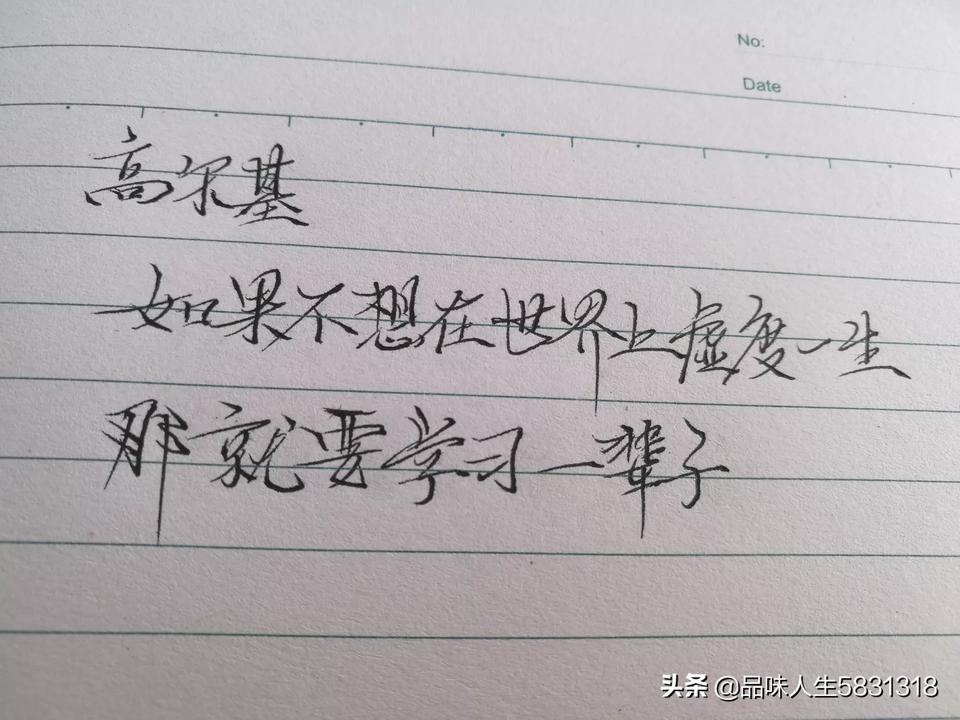 No:
Date
高尔基
如果不想在世界上虚度一生
那就要学习一辈子
头条 @品味人生5831318